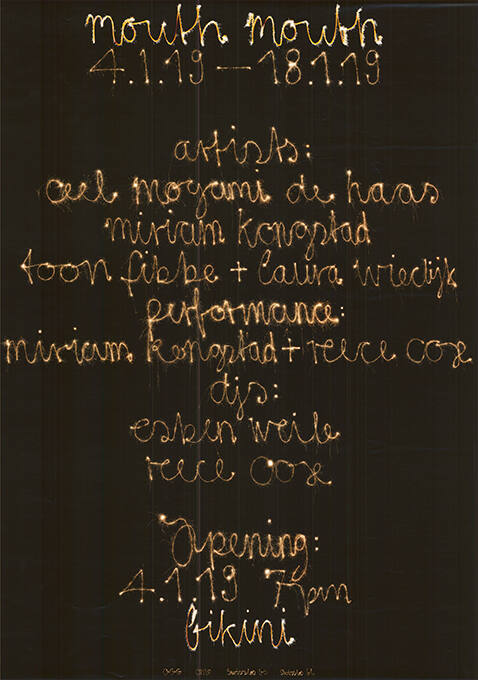 mouth mouth
4.1.19 – 18.1.19
artists:
ceel mogami de haas
miriam kongstad
toon fibbe + laura wiedijk
performance:
miriam kongstad + reece cox
djs:
esben weile
reece cox
opening:
4.1.19 7pm
bikini